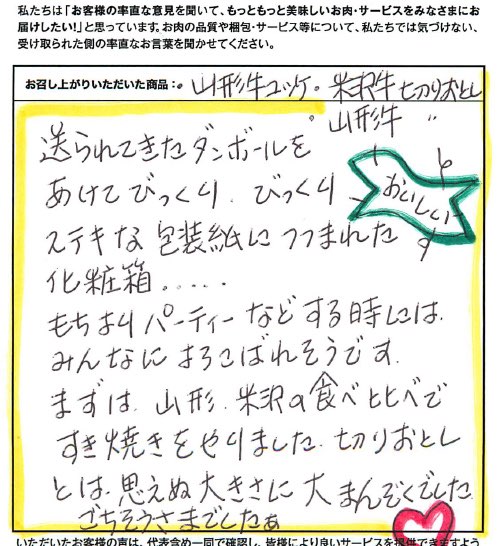 私たちは「お客様の率直な意見を聞いて、もっともっと美味しいお肉・サービスをみなさまにお
届けしたい!」と思っています。お肉の品質や梱包・サービス等について、私たちでは気づけない、
受け取られた側の率直なお言葉を聞かせてください。
お召し上がりいただいた商品:。山形牛ユッケ。米沢牛切りおとし
。山形牛 〃
送られてきたダンボールを
あけてびっくり、びっくり
おいしい
ステキな包装紙につつまれた
化粧箱.....
もちよりパーティーなどする時には、
みんなによろこばれそうです。
まずは、山形、米沢の食べ比べで
すき焼きをやりました。切りおとし
とは、思えぬ大きさに大まんぞくでした
ごちそうさまでしたぁ
いただいたお客様の声は、代表含め一同で確認し、皆様により良いサービスを提供できますよう